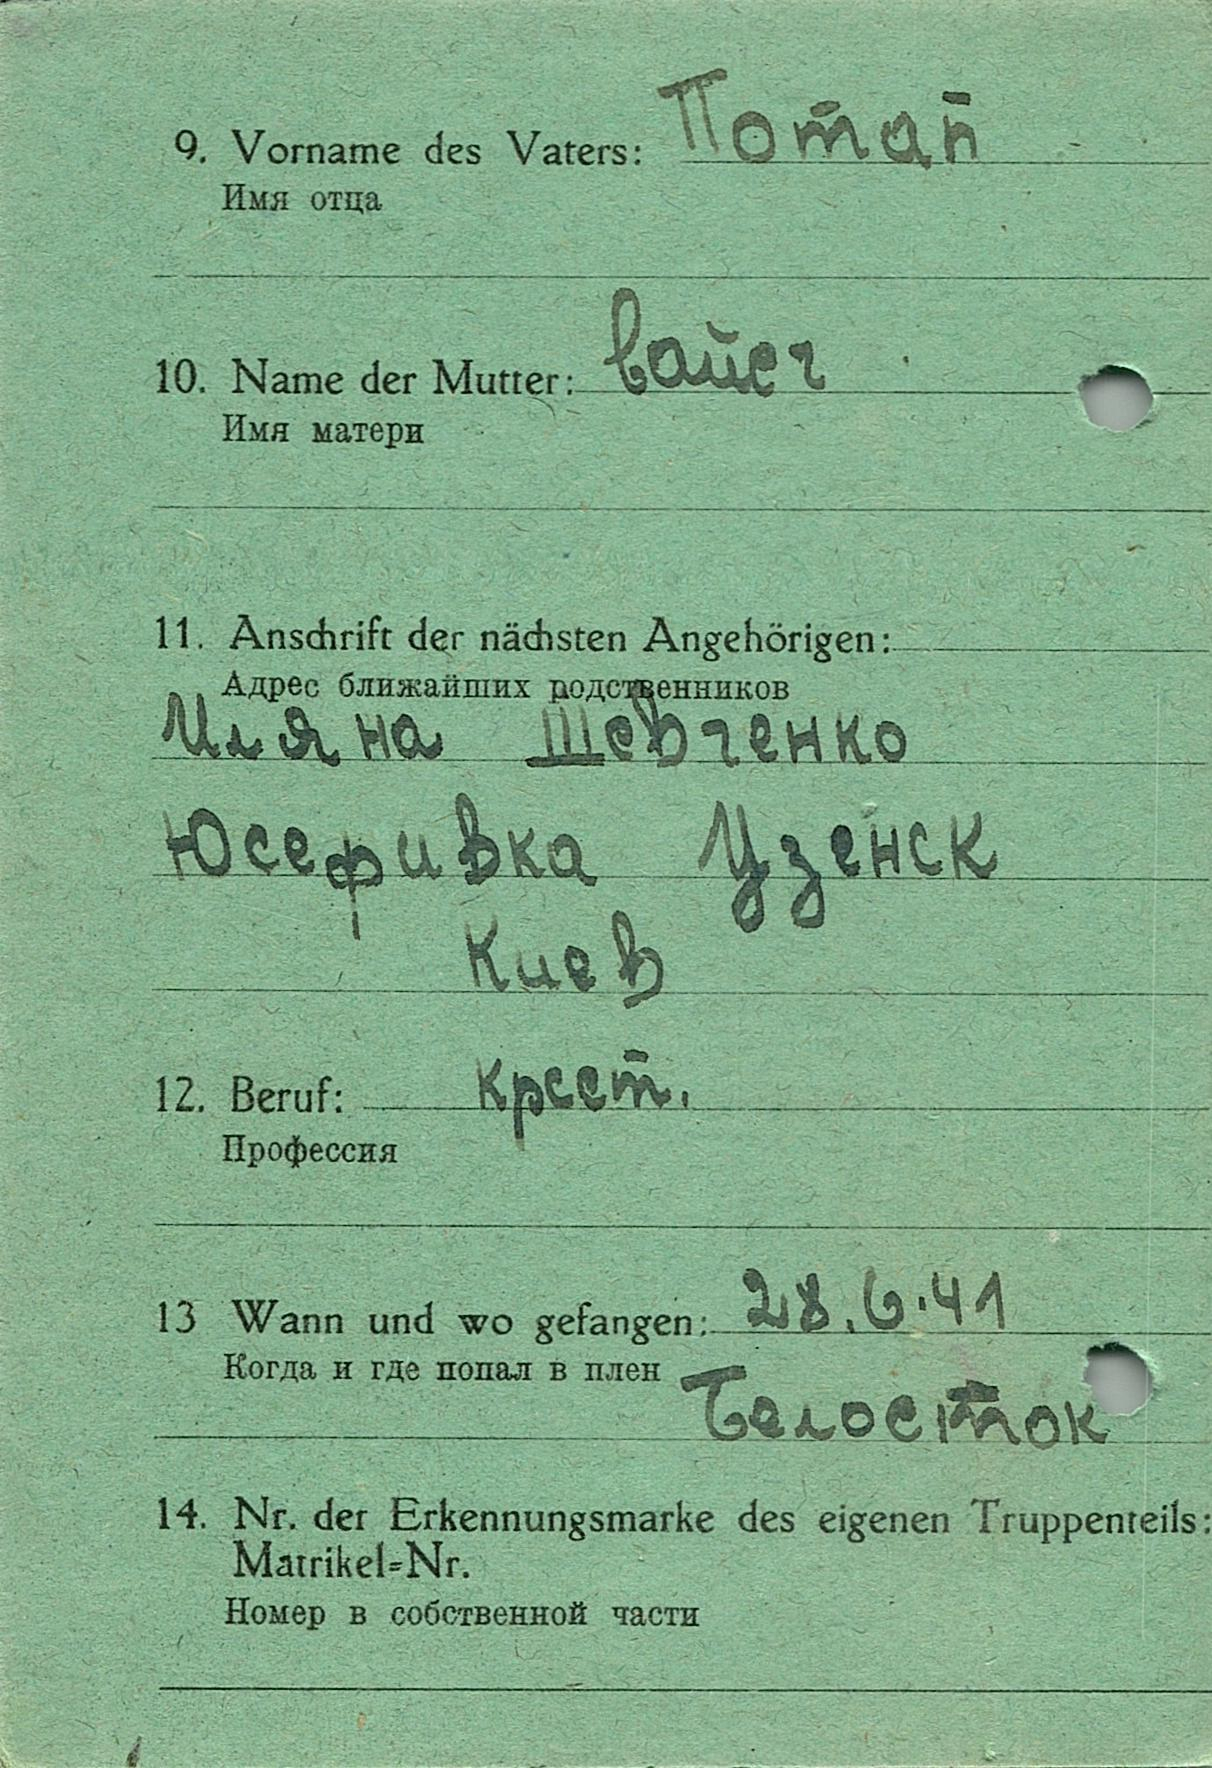 9. Vorname des Vaters: Потап
Имя отца
10. Name der Mutter: вайсч
Имя матери
11. Anschrift der nächsten Angehörigen:
Адрес ближайших родственников
Иляна Шевченко
Юсефивка Узенск
Киев
12. Beruf: крест.
Профессия
13 Wann und wo gefangen: 28.6.41
Когда и где попал в плен
Белосток
14. Nr. der Erkennungsmarke des eigenen Truppenteils:
Matrikel=Nr.
Номер в собственной части